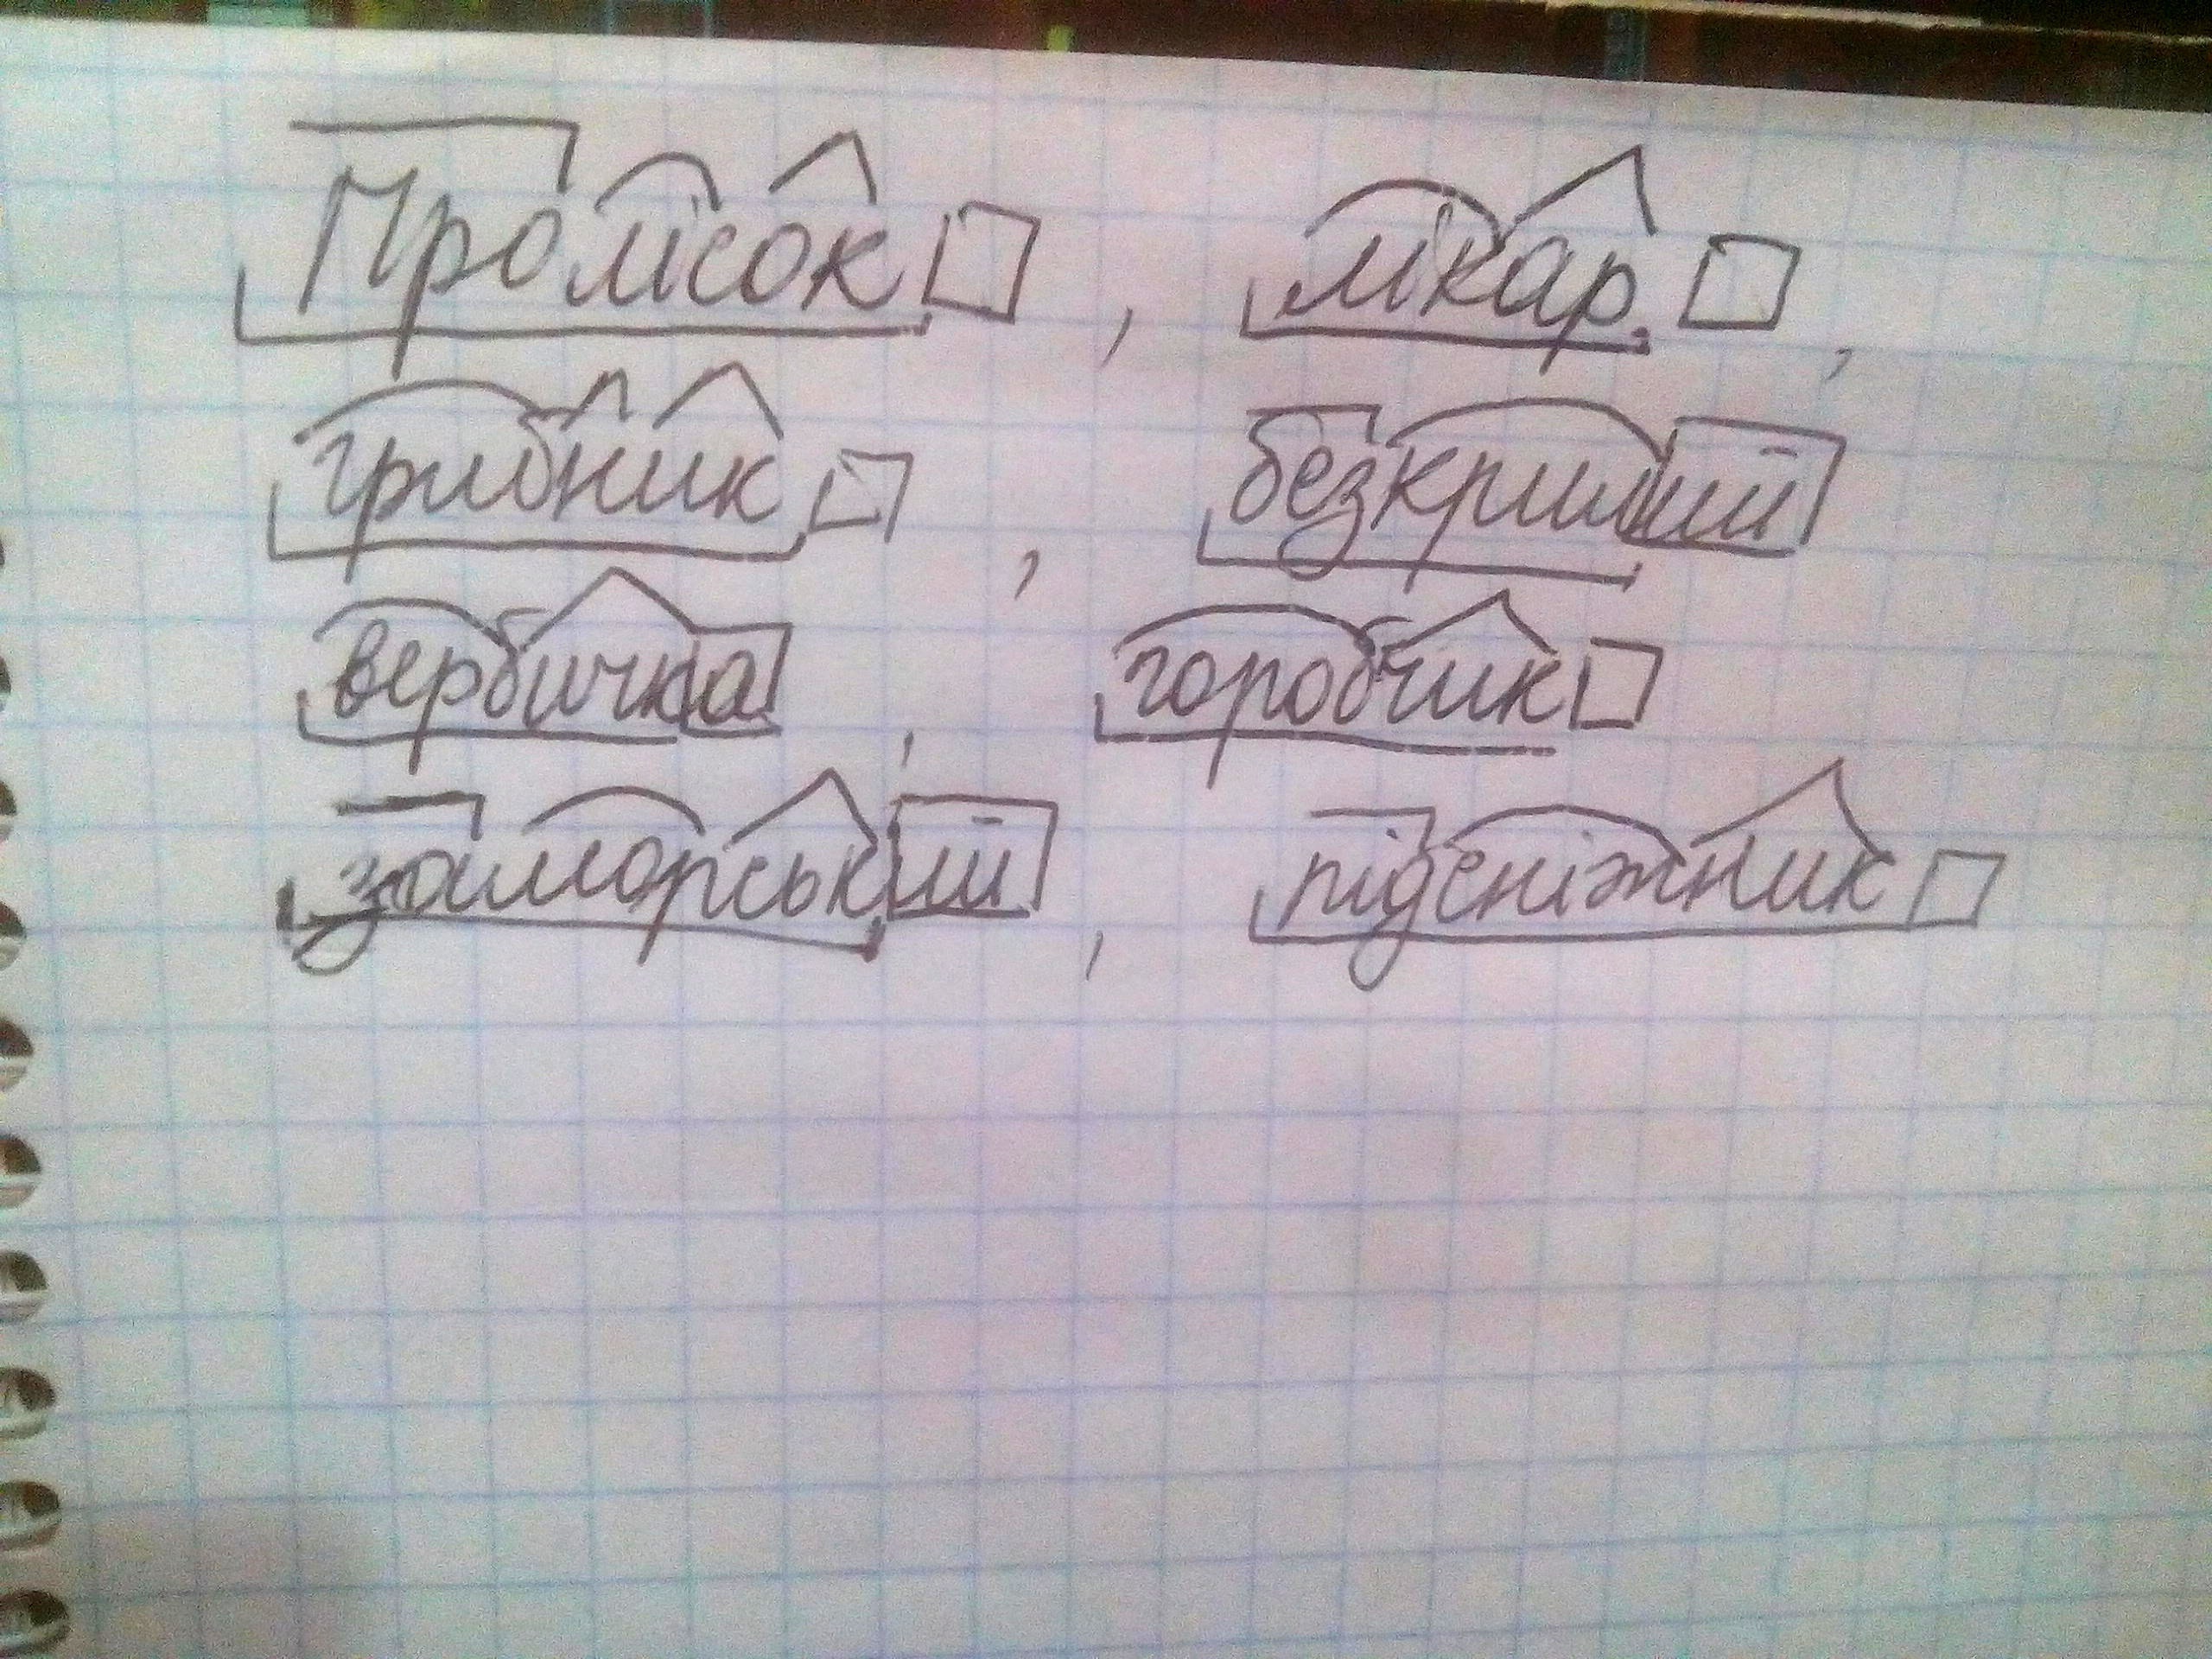 Пролісок, лікар,
грибник, безкрилий
вербичка, горобчик
заморський, підсніжник